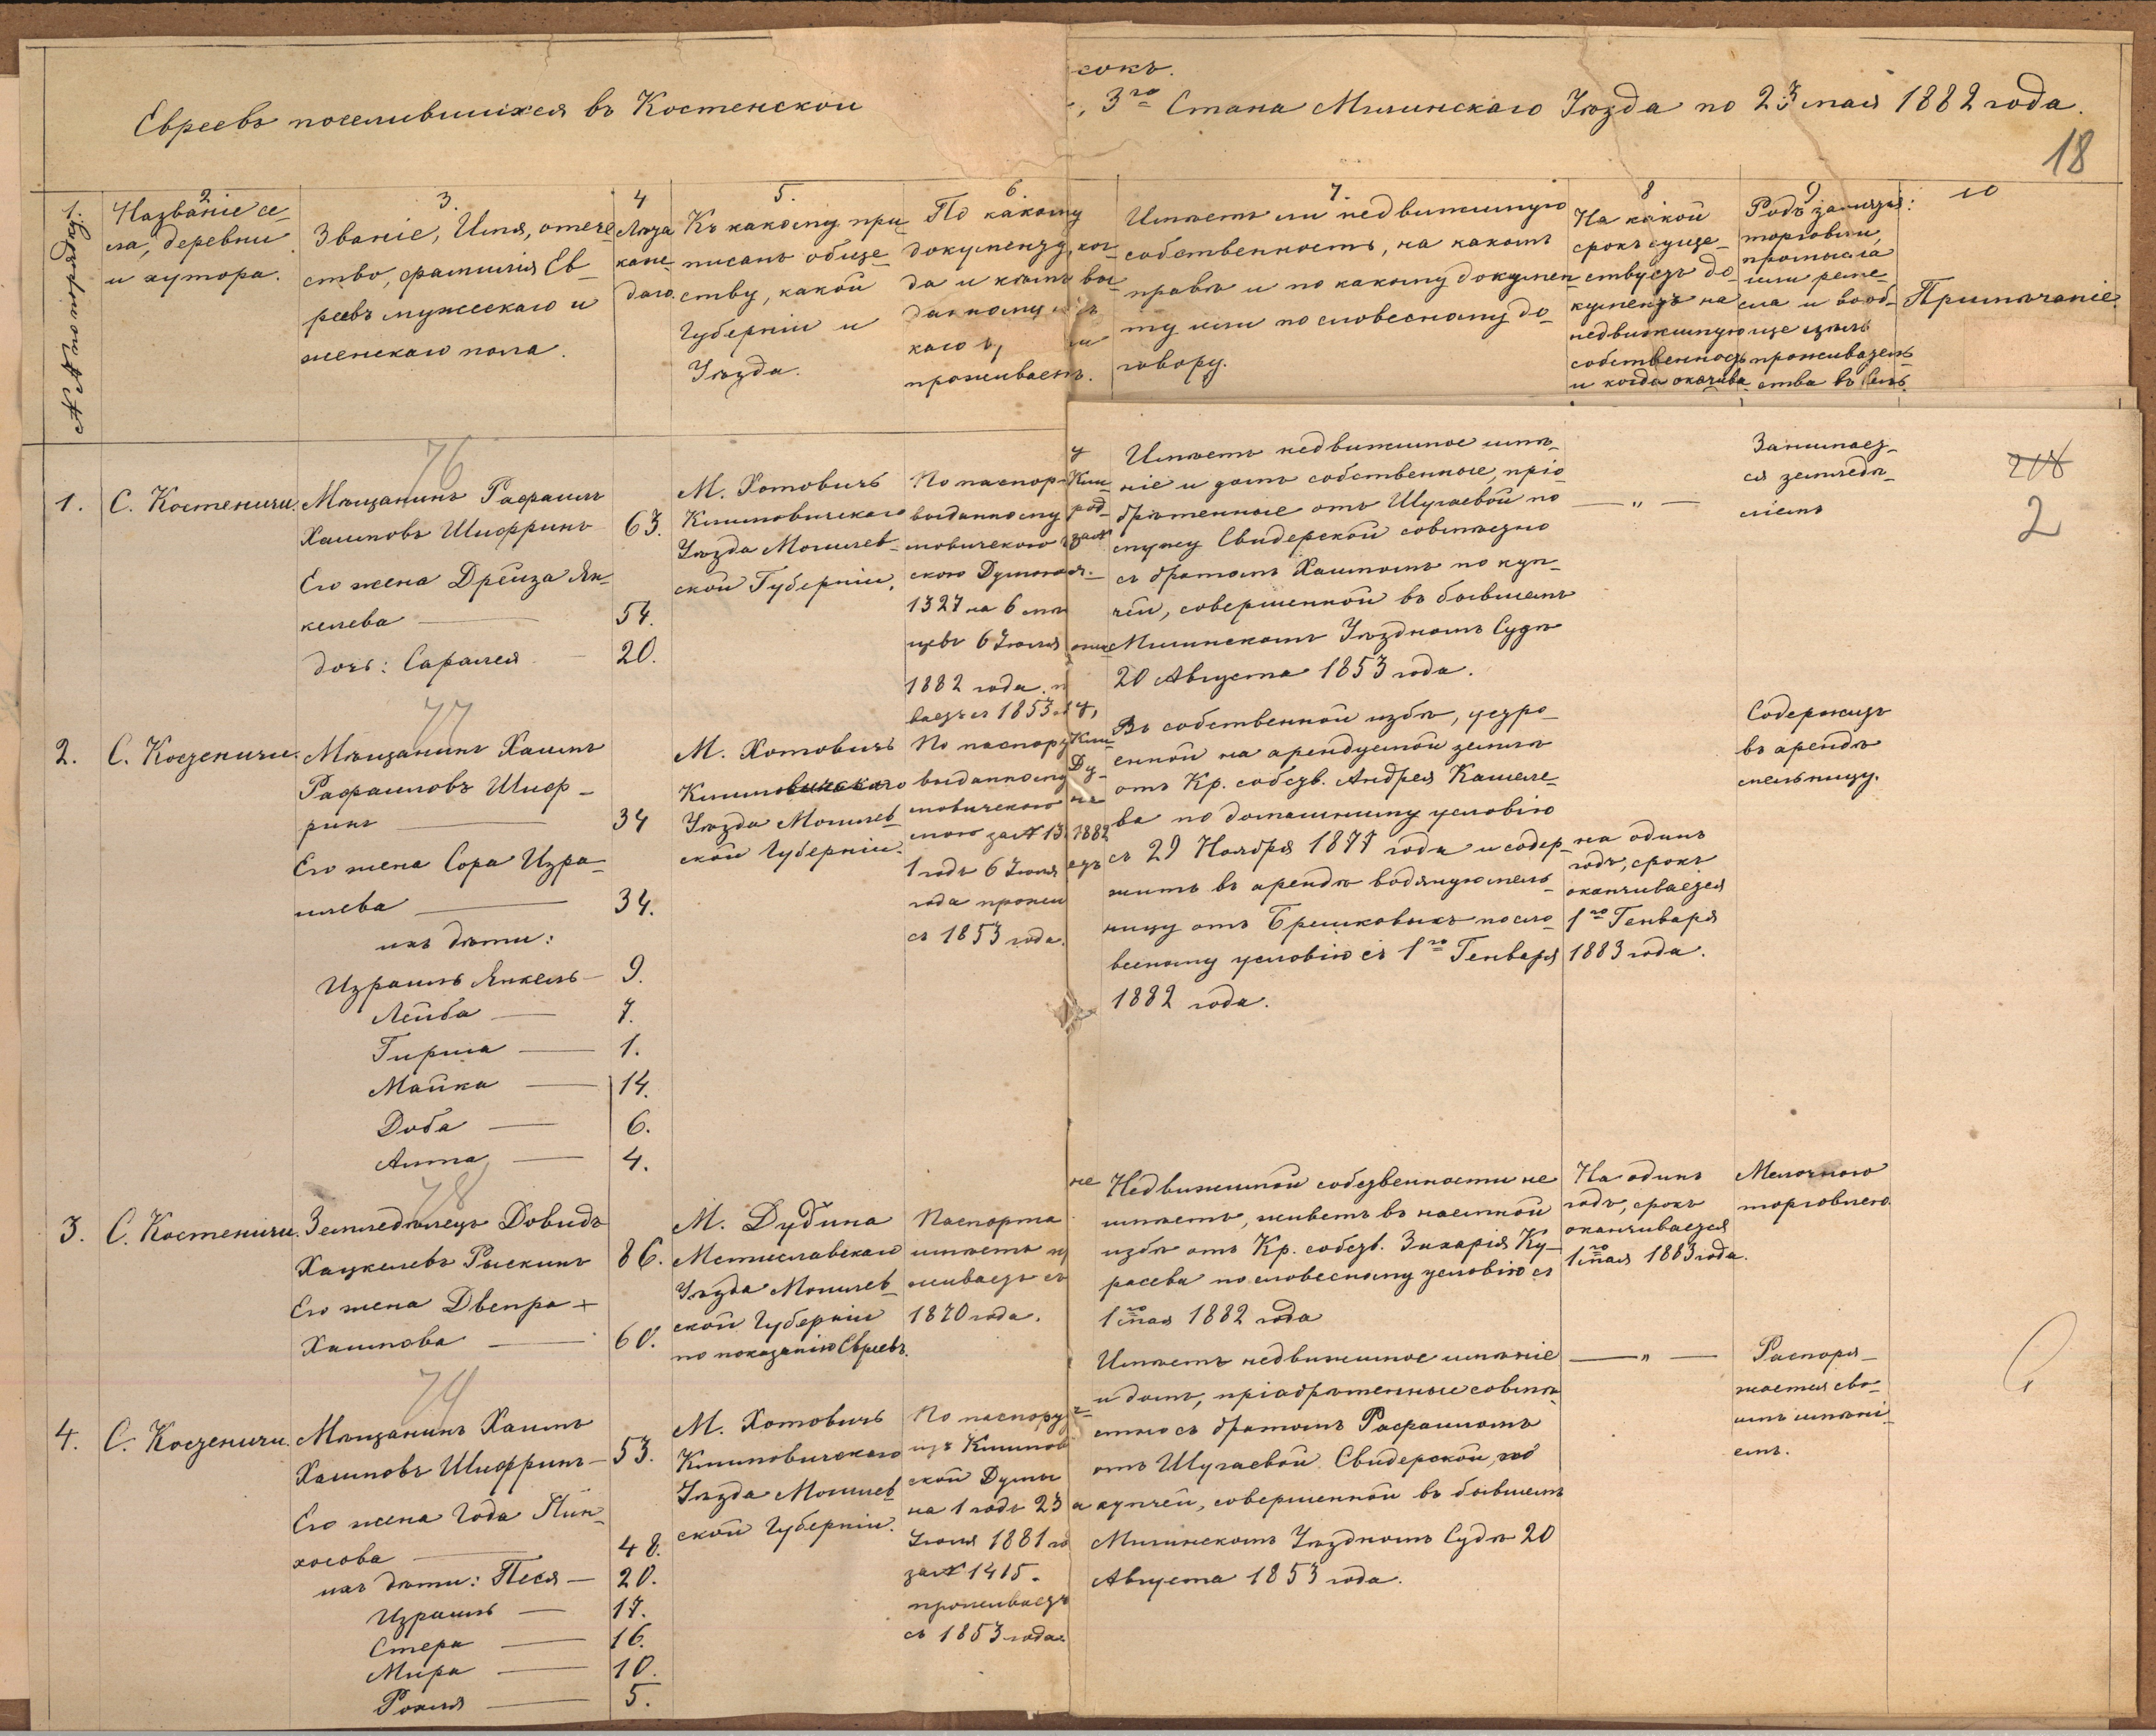 сокъ.
Евреевъ поселившихся въ Костенской
, 3го Стана Мглинскаго Уѣзда по 23 мая 1882 года.
18
1.
№ по порядку.
2
Названіе се-
ла, деревни
и хутора.
3.
Званіе, Имя, отече-
ство, фамилія Ев-
реевъ мужескаго и
женскаго пола.
4
Лѣта
каж-
даго.
5.
Къ какому при-
писанъ обще-
ству, какой
Губерніи и
Уѣзда.
6.
По какому
документу, ког-
да и кѣмъ вы-
данному
каго
проживаетъ.
7.
Имѣетъ ли недвижимую
собственность, на какомъ
правѣ и по какому докумен-
ту или по словесному до-
говору.
8
На какой
срокъ суще-
ствуетъ до-
кументъ на
недвижимую
собственность
и когда окачива
9
Родъ занятія:
торговли,
промысла
или реме-
сла и вооб-
ще цѣль
проживатель-
ства въ селѣ
10
Примѣчаніе.
76
1.
С. Костеничи.
Мѣщанинъ Рафаилъ
Хаимовъ Шифринъ
63.
Его жена Дрейза Ян-
келева — 54.
дочь: Сарамея — 20.
М. Хотовичъ
Климовичскаго
Уѣзда Могилев-
ской Губерніи.
По паспор-
выданному
мовичскою
скою Думою
1327 на 6 мѣ
цевъ 6 Іюля
1882 года.
ваетъ съ 1853
у
Кли-
род-
за №
Имѣетъ недвижимое имѣ-
ніе и домъ собственное, прі-
обрѣтенное отъ Шугаевой по
мужу Свидерской совмѣстно
съ братомъ Хаимомъ по куп-
чей, совершенной въ бывшемъ
Мглинскомъ Уѣздномъ Судѣ
20 Августа 1853 года.
— " —
Занимает-
ся земледѣ-
ліемъ
218
2
77
2.
С. Костеничи.
Мѣщанинъ Хаимъ
Рафаиловъ Шиф-
ринъ — 34
Его жена Сора Изра-
илева — 34.
ихъ дѣти:
Израиль Янкель — 9.
Лейба — 7.
Гирша — 1.
Майка — 14.
Доба — 6.
Анна — 4.
М. Хотовичъ
Климовичскаго
Уѣзда Могилев-
ской Губерніи.
По паспорту
выданному
мовичскою
мою за № 13
1 годъ 6 Іюля
года прожи
съ 1853 года.
Кли-
Ду-
на
1882
етъ
Въ собственной избѣ, устро-
енной на арендуемой землѣ
отъ Кр. собств. Андрея Кашеле-
ва по домашнему условію
съ 29 Ноября 1877 года и содер-
житъ въ арендѣ водяную мель-
ницу отъ Брешковыхъ по сло-
весному условію съ 1го Генваря
1882 года.
на одинъ
годъ, срокъ
оканчивается
1го Генваря
1883 года.
Содержитъ
въ арендѣ
мельницу.
78
3.
С. Костеничи.
Земледѣлецъ Довидъ
Хацкелевъ Рыскинъ
86.
Его жена Двейра +
Хаимова — 60.
М. Дубина
Мстиславскаго
Уѣзда Могилев-
ской Губерніи
по показанію Евреевъ.
Паспорта
имѣетъ
живаетъ съ
1870 года.
не
Недвижимой собственности не
имѣетъ, живетъ въ наемной
избѣ отъ Кр. собств. Захарія Ку-
расева по словесному условію съ
1го мая 1882 года
На одинъ
годъ, срокъ
оканчивается
1го мая 1883 года.
Мелочною
торговлею
79
4.
С. Костеничи.
Мѣщанинъ Хаимъ
Хаимовъ Шифринъ — 53.
Его жена Года Пин-
хосова — 48.
ихъ дѣти: Песя — 20.
Израиль — 17.
Стера — 16.
Мира — 10.
Рохля — 5.
М. Хотовичъ
Климовичскаго
Уѣзда Могилев-
ской Губерніи.
По паспорту
изъ Климов
ской Думы
на 1 годъ 23
Іюля 1881 го
за № 1415.
проживаетъ
съ 1853 года
Имѣетъ недвижимое имѣніе
и домъ, пріабрѣтенные совмѣ-
стно съ братомъ Рафаиломъ
отъ Шугаевой Свидерской, по
купчей, совершенной въ бывшемъ
Мглинскомъ Уѣздномъ Судѣ 20
Августа 1853 года.
— " —
Распоря-
жается сво-
имъ имѣні-
емъ.